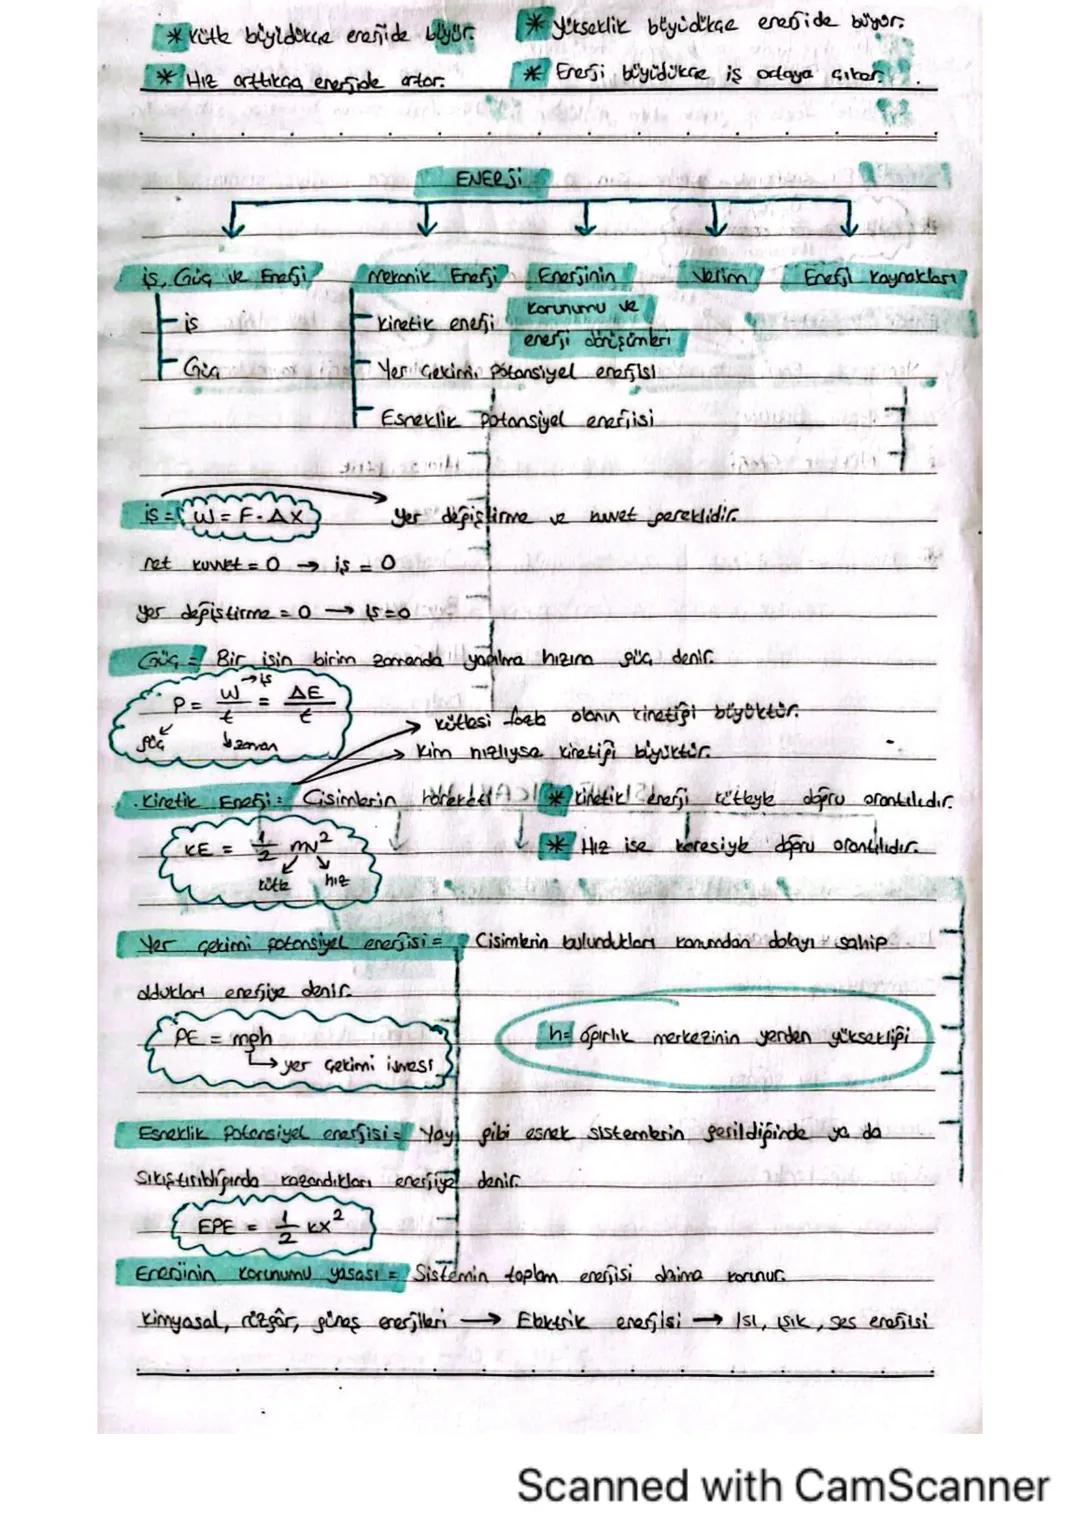 * Kütle büyüdükçe enerjide büyür.
* Yükseklik büyüdükçe enerjide büyür.
* Hız arttıkça enerjide artar.
* Enerji büyüdükçe iş ortaya çıkar.
ENERJİ
İş, Güç ve Enerji
Mekanik Enerji
Enerjinin korunumu ve enerji dönüşümleri
Verim
Enerji Kaynakları
İş
Güç
Kinetik enerji
Yer Çekimi Potansiyel enerjisi
Esneklik potansiyel enerjisi
İş = W = F . ΔX → Yer değiştirme ve kuvvet gereklidir.
net kuvvet = 0 → iş = 0
yer değiştirme = 0 → iş = 0
Güç = Bir işin birim zamanda yapılma hızına güç denir.
P = W/t = ΔE/t
iş
güç
zaman
→ kütlesi fazla olanın kinetiği büyüktür.
→ Kim hızlıysa kinetiği büyüktür.
Kinetik Enerji = Cisimlerin hareketi
* kinetik enerji kütleyle doğru orantılıdır.
* Hız ise karesiyle doğru orantılıdır.
KE = 1/2 mv²
kütle
hız
Yer çekimi potansiyel enerjisi = Cisimlerin bulundukları konumdan dolayı sahip
oldukları enerjiye denir.
PE = mgh
→ yer çekimi ivmesi
h= ağırlık merkezinin yerden yüksekliği
Esneklik Potansiyel enerjisi = Yay gibi esnek sistemlerin gerildiğinde ya da
sıkıştırıldığında kazandıkları enerjiye denir.
EPE = 1/2 kx²
Enerjinin korunumu yasası = Sistemin toplam enerjisi daima korunur.
Kimyasal, rüzgâr, güneş enerjileri → Elektrik enerjisi → Isı, ışık, ses enerjisi
Scanned with CamScanner